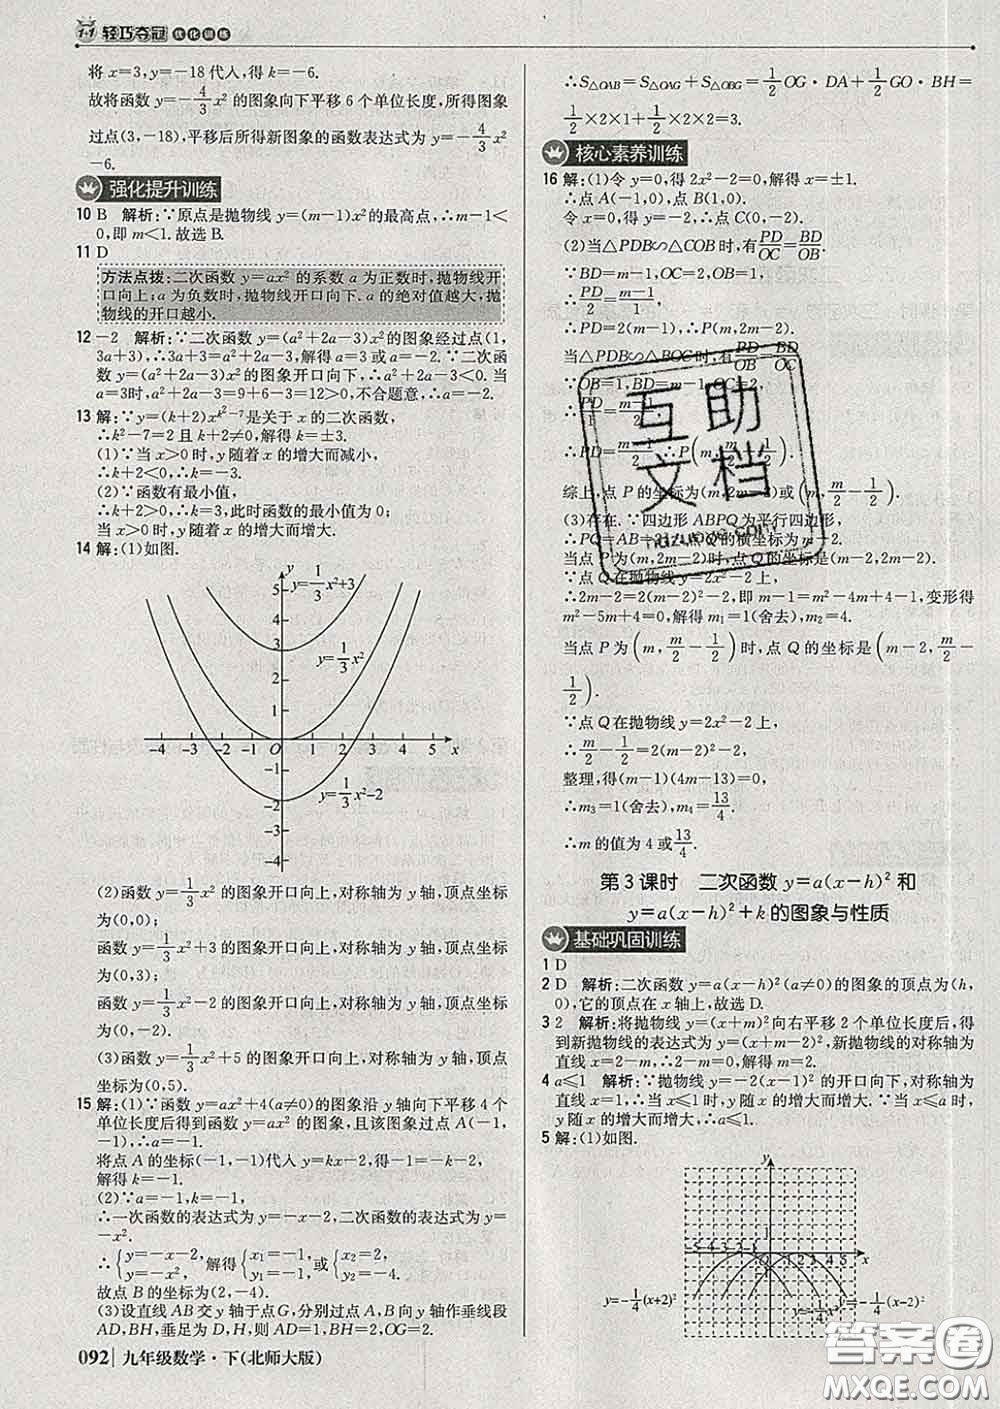 1+1 轻巧夺冠 优化训练
将 x=3,y=-18 代入,得 k=-6.
故将函数 y=-4/3x² 的图象向下平移 6 个单位长度,所得图象
过点(3,-18),平移后所得新图象的函数表达式为 y=-4/3x²
-6.
强化提升训练
10 B 解析:∵原点是抛物线 y=(m-1)x²的最高点,∴m-1<
0,即 m<1.故选 B.
11 D
方法点拨:二次函数 y=ax² 的系数 a 为正数时,抛物线开
口向上;a 为负数时,抛物线开口向下.a 的绝对值越大,抛
物线的开口越小.
12 -2 解析:∵二次函数 y=(a²+2a-3)x²的图象经过点(1,
3a+3),∴3a+3=a²+2a-3,解得 a=3 或 a=-2.∵二次函
数 y=(a²+2a-3)x²的图象开口向下,∴a²+2a-3<0.当
a=3时,a²+2a-3=9+6-3=12>0,不合题意,∴a=-2.
13 解:∵y=(k+2)x^(k²-7)是关于 x 的二次函数,
∴k²-7=2 且 k+2≠0,解得 k=±3.
(1)∵当 x>0 时,y 随着 x 的增大而减小,
∴k+2<0,∴k=-3.
(2)∵函数有最小值,
∴k+2>0,∴k=3,此时函数的最小值为 0;
当 x>0 时,y 随着 x 的增大而增大.
14 解:(1)如图.
y
y=1/3x²+3
5
4
3
y=1/3x²
-4 -3 -2 -1 O 1 2 3 4 5 x
y=1/3x²-2
-2
-3
-4
(2)函数 y=1/3x² 的图象开口向上,对称轴为 y 轴,顶点坐标
为(0,0);
函数 y=1/3x²+3 的图象开口向上,对称轴为 y 轴,顶点坐标
为(0,3);
函数 y=1/3x²-2 的图象开口向上,对称轴为 y 轴,顶点坐标为
(0,-2).
(3)函数 y=1/3x²+5 的图象开口向上,对称轴为 y 轴,顶点
坐标为(0,5).
15 解:(1)∵函数 y=ax²+4(a≠0)的图象沿 y轴向下平移 4 个
单位长度后得到函数 y=ax² 的图象,且该图象过点 A(-1,
-1),∴a=-1.
将点 A 的坐标(-1,-1)代入 y=kx-2,得-1=-k-2,
解得 k=-1.
(2)∵a=-1,k=-1,
∴一次函数的表达式为 y=-x-2,二次函数的表达式为 y=
-x².
∴{y=-x-2, y=-x², 解得{x₁=-1, y₁=-1, 或{x₂=2, y₂=-4.
故点 B 的坐标为(2,-4).
(3)设直线 AB 交 y 轴于点 G,分别过点 A,B 向 y 轴作垂线段
AD,BH,垂足为 D,H,则 AD=1,BH=2,OG=2.
092 九年级数学·下(北师大版)
∴S△OAB=S△OAG+S△OBG=1/2OG·DA+1/2GO·BH=
1/2×2×1+1/2×2×2=3.
核心素养训练
16 解:(1)令 y=0,得 2x²-2=0,解得 x=±1.
∴点 A(-1,0),点 B(1,0).
令 x=0,得 y=-2,∴点 C(0,-2).
(2)当△PDB∽△COB 时,有PD/OC=BD/OB.
∵BD=m-1,OC=2,OB=1,
∴PD/2=(m-1)/1,
∴PD=2(m-1),∴P(m,2m-2).
当△PDB∽△BOC 时,有PD/OB=BD/OC.
∵OB=1,BD=m-1,OC=2,
∴PD/1=(m-1)/2,
∴PD=(m-1)/2,∴P(m,m/2-1/2).
综上,点 P 的坐标为(m,2m-2)或(m,m/2-1/2).
(3)存在.∵四边形 ABPQ 为平行四边形,
∴PQ=AB=2,点 Q 的横坐标为 m-2.
当点 P 为(m,2m-2)时,点 Q 的坐标是(m-2,2m-2).
∵点 Q 在抛物线 y=2x²-2 上,
∴2m-2=2(m-2)²-2,即 m-1=m²-4m+4-1,变形得
m²-5m+4=0,解得 m₁=1(舍去),m₂=4.
当点 P 为(m,m/2-1/2)时,点 Q 的坐标是(m-2,m/2-
1/2).
∵点 Q 在抛物线 y=2x²-2 上,
∴m/2-1/2=2(m-2)²-2,
整理,得(m-1)(4m-13)=0,
∴m₃=1(舍去),m₄=13/4.
∴m 的值为 4 或13/4.
第 3 课时 二次函数 y=a(x-h)² 和
y=a(x-h)²+k 的图象与性质
基础巩固训练
1 D
2 D 解析:二次函数 y=a(x-h)²(a≠0)的图象的顶点为(h,
0),它的顶点在 x 轴上,故选 D.
3 2 解析:将抛物线 y=(x+m)²向右平移 2 个单位长度后,得
到新抛物线的表达式为 y=(x+m-2)²,新抛物线的对称轴为
直线 x=2-m,∴2-m=0,解得 m=2.
4 a≤1 解析:∵抛物线 y=-2(x-1)² 的开口向下,对称轴为
直线 x=1,∴当 x≤1 时,y 随 x 的增大而增大.∵当 x≤a 时,
y 随 x 的增大而增大,∴a≤1.
5 解:(1)如图.
y
1
-5-4-3-2-1 O 1 2 3 4 5 x
y=-1/4(x+2)²
y=-1/4x²
y=-1/4(x-2)²
互助
文档
答案圈
MXQE.COM